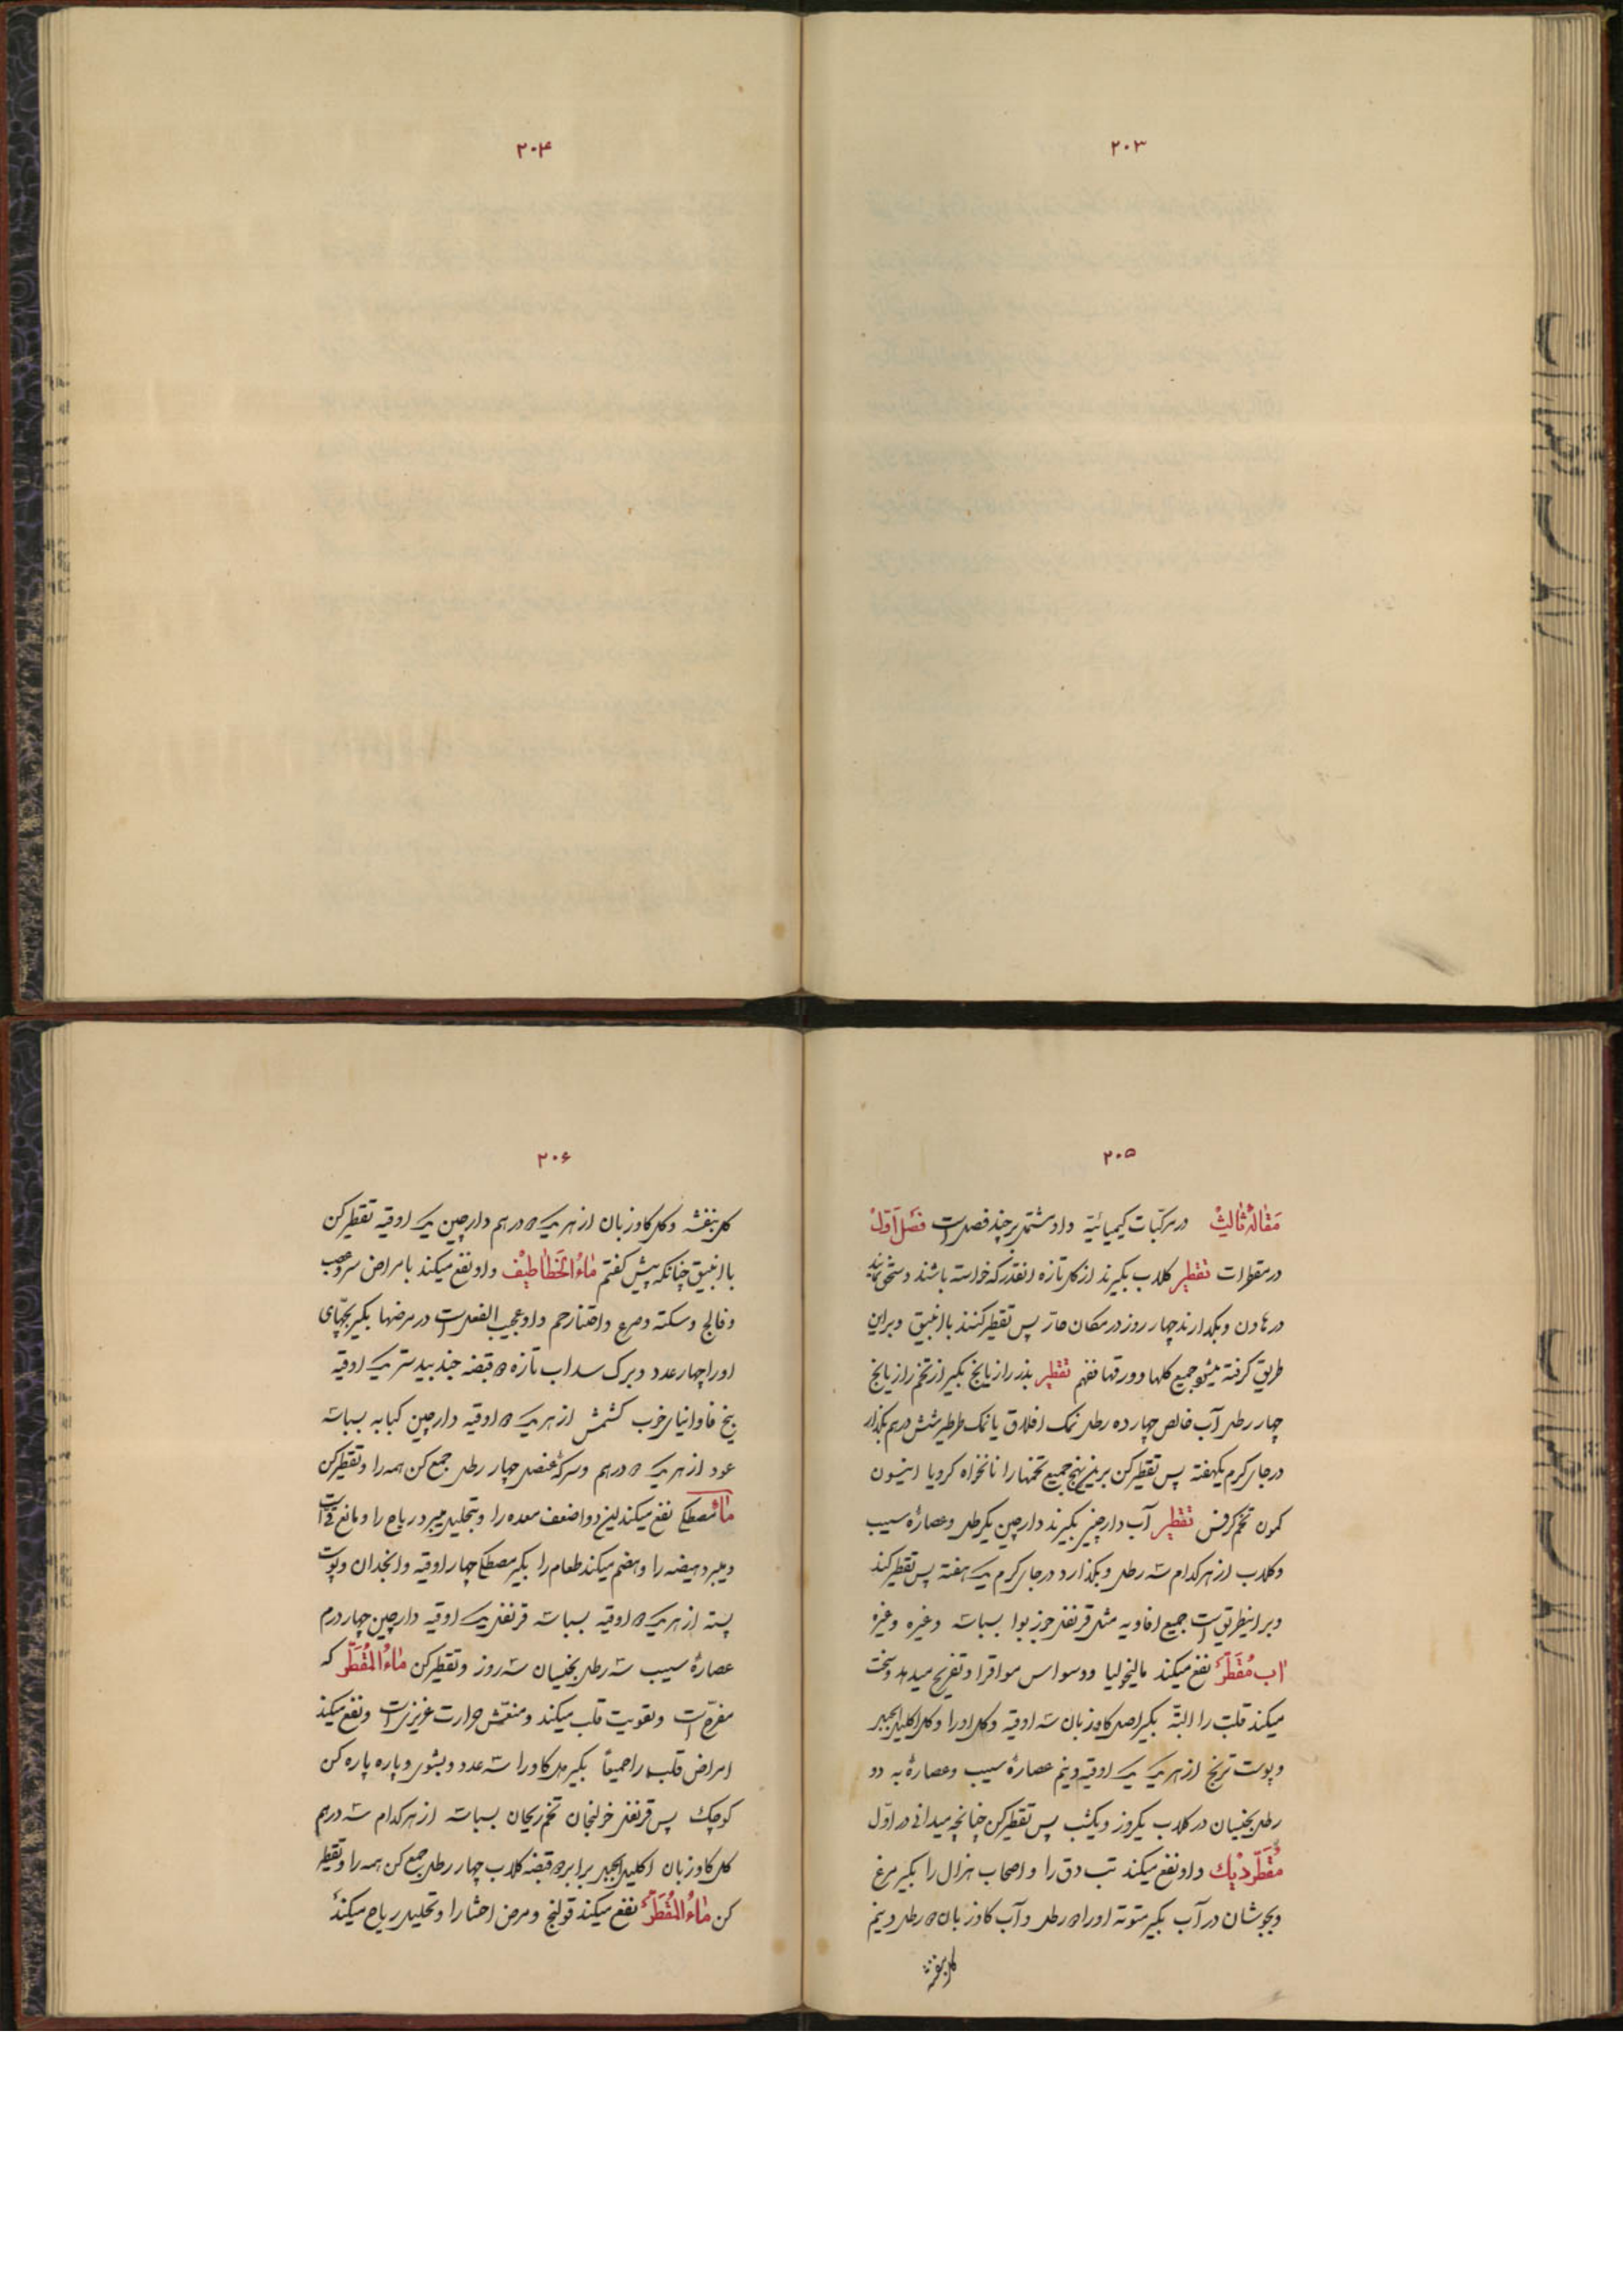 ۲۰۳
۲۰۴
۲۰۵
مقالهٔ ثالث در مرکبات کیمیائیة و او مشتمل بر چند فصل است فصل اول
در مقطرات تقطیر کلاب بکیرند از کل تازه انقدر که خواسته باشند و سحق نمایند
در هاون و بکذارند چهار روز در مکان حار پس تقطیر کنند با انبیق و براین
طریق کرفته میشود جمیع کلها و ورقها فافهم تقطیر بذر رازیانج بکیر از تخم رازیانج
چهار رطل آب خالص چهارده رطل نمک اندرانی یا نمک طرطیر شش درهم بکذار
در جای کرم یکهفته پس تقطیر کن برین نهج جمیع تخمها را نانخواه کرویا انیسون
کمون تخم کرفس تقطیر آب دارچین بکیرند دارچین یکرطل و عصارهٔ سیب
و کلاب از هرکدام سه رطل و بکذارد در جای کرم یک هفته پس تقطیر کند
و بر اینطریق است جمیع افاویه مثل قرنفل جوزبوا بسباسه و غیره و غیره
اب مقطر نفع میکند مالیخولیا و وسواس مراقرا و تفریح میدهد و سخت
میکند قلب را البته بکیر اصل کاوزبان سه اوقیه و کل اورا و کل اکلیل الجبل
و پوست ترنج از هر یک یک اوقیه و نیم عصارهٔ سیب و عصارهٔ به دو
رطل بخیسان در کلاب یکروز و یکشب پس تقطیر کن چنانچه میدانی در اول
مقطر دیک و او نفع میکند تب دق را و اصحاب هزال را بکیر مرغ
و بجوشان در آب بکیر متوته اورا ۵ رطل و آب کاوزبان ۵ رطل و نیم
کل بنفشه
۲۰۶
کل بنفشه و کل کاوزبان از هر یک ۵ درهم دارچین یک اوقیه تقطیر کن
با انبیق چنانکه پیش کفتم ماء الخطاطیف و او نفع میکند بامراض سر و عصب
و فالج و سکته و صرع و اختناق رحم و او عجیب الفعل است در مرضها بکیر بچهای
اورا چهار عدد و برک سداب تازه ۵ قبضه جندبیدستر یک اوقیه
بیخ فاوانیای خوب کشمش از هر یک ۵ اوقیه دارچین کبابه بسباسه
عود از هر یک ۵ درهم و سرکه عنصل چهار رطل جمع کن همه را و تقطیر کن
ماء مصطکی نفع میکند این دوا ضعف معده را و بتحلیل میبرد ریاح را و مانع قی است
و میبرد هیضه را و هضم میکند طعام را بکیر مصطکی چهار اوقیه و انجدان و پوست
پسته از هر یک ۵ اوقیه بسباسه قرنفل یک اوقیه دارچین چهار درم
عصارهٔ سیب سه رطل بخیسان سه روز و تقطیر کن ماء المقطر که
مفرح است و تقویت قلب میکند و منعش حرارت غریزیست و نفع میکند
امراض قلب را جمیعا بکیر دل کاورا سه عدد و بشوی و پاره پاره کن
کوچک پس قرنفل خولنجان تخم ریحان بسباسه از هرکدام سه درهم
کل کاوزبان اکلیل الجبل برابر ۵ قبضه کلاب چهار رطل جمع کن همه را و تقطیر
کن ماء المقطر نفع میکند قولنج و مرض احشا را و تحلیل ریاح میکند